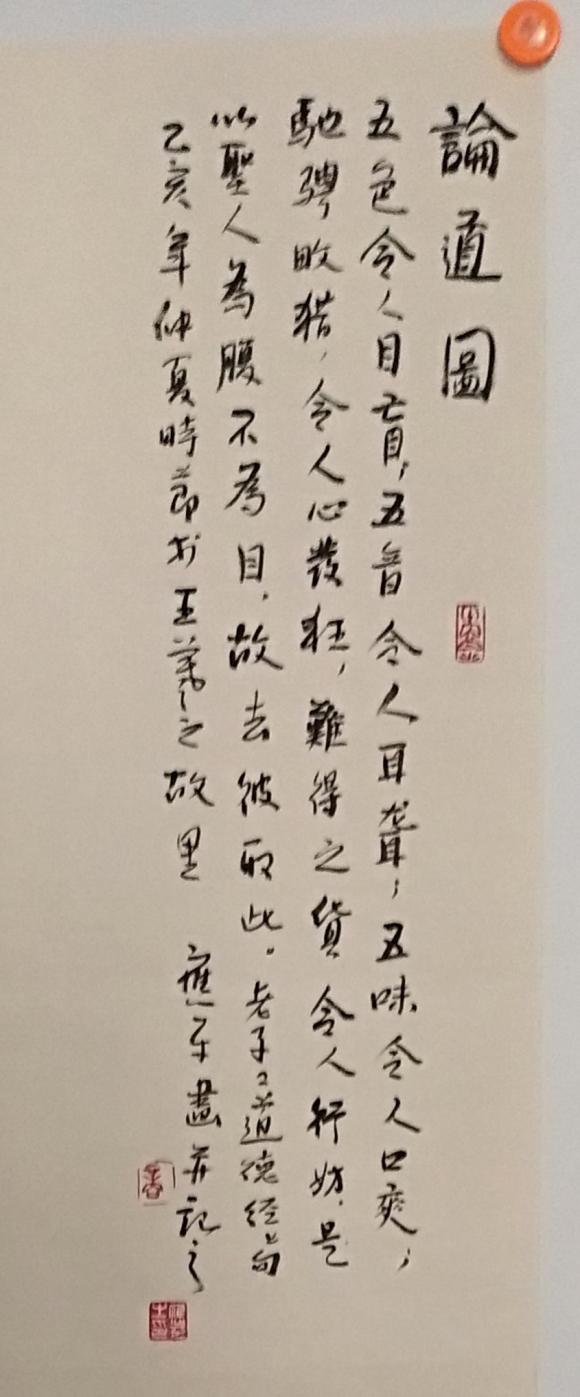 論道圖
五色令人目盲;五音令人耳聾;五味令人口爽;
馳騁畋猎,令人心發狂,難得之貨令人行妨.是
以聖人為腹不為目.故去彼取此。老子道德经句
乙亥年仲夏時節於王羲之故里 平畫并記之